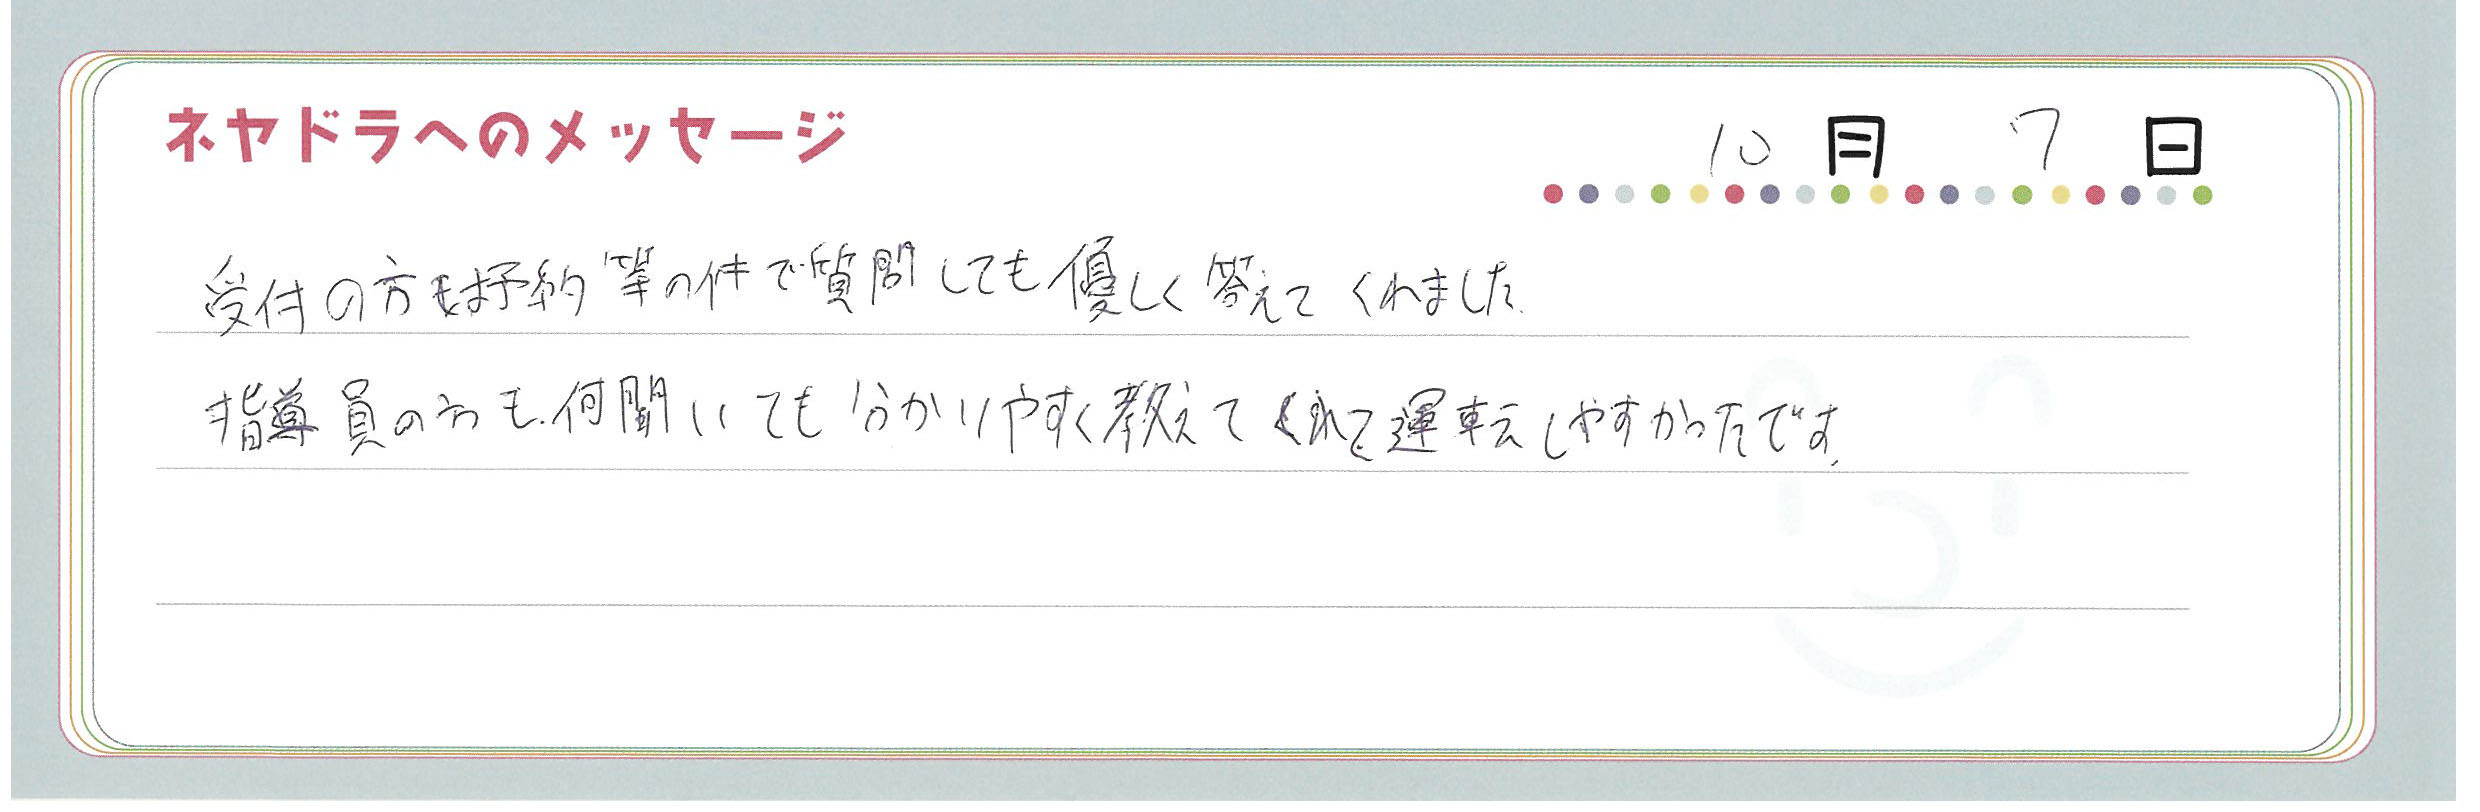 ネヤドラへのメッセージ
10月 7日
受付の方も予約等の件で質問しても優しく答えてくれました.
指導員の方も.何聞いても分かりやすく教えてくれて運転しやすかったです.